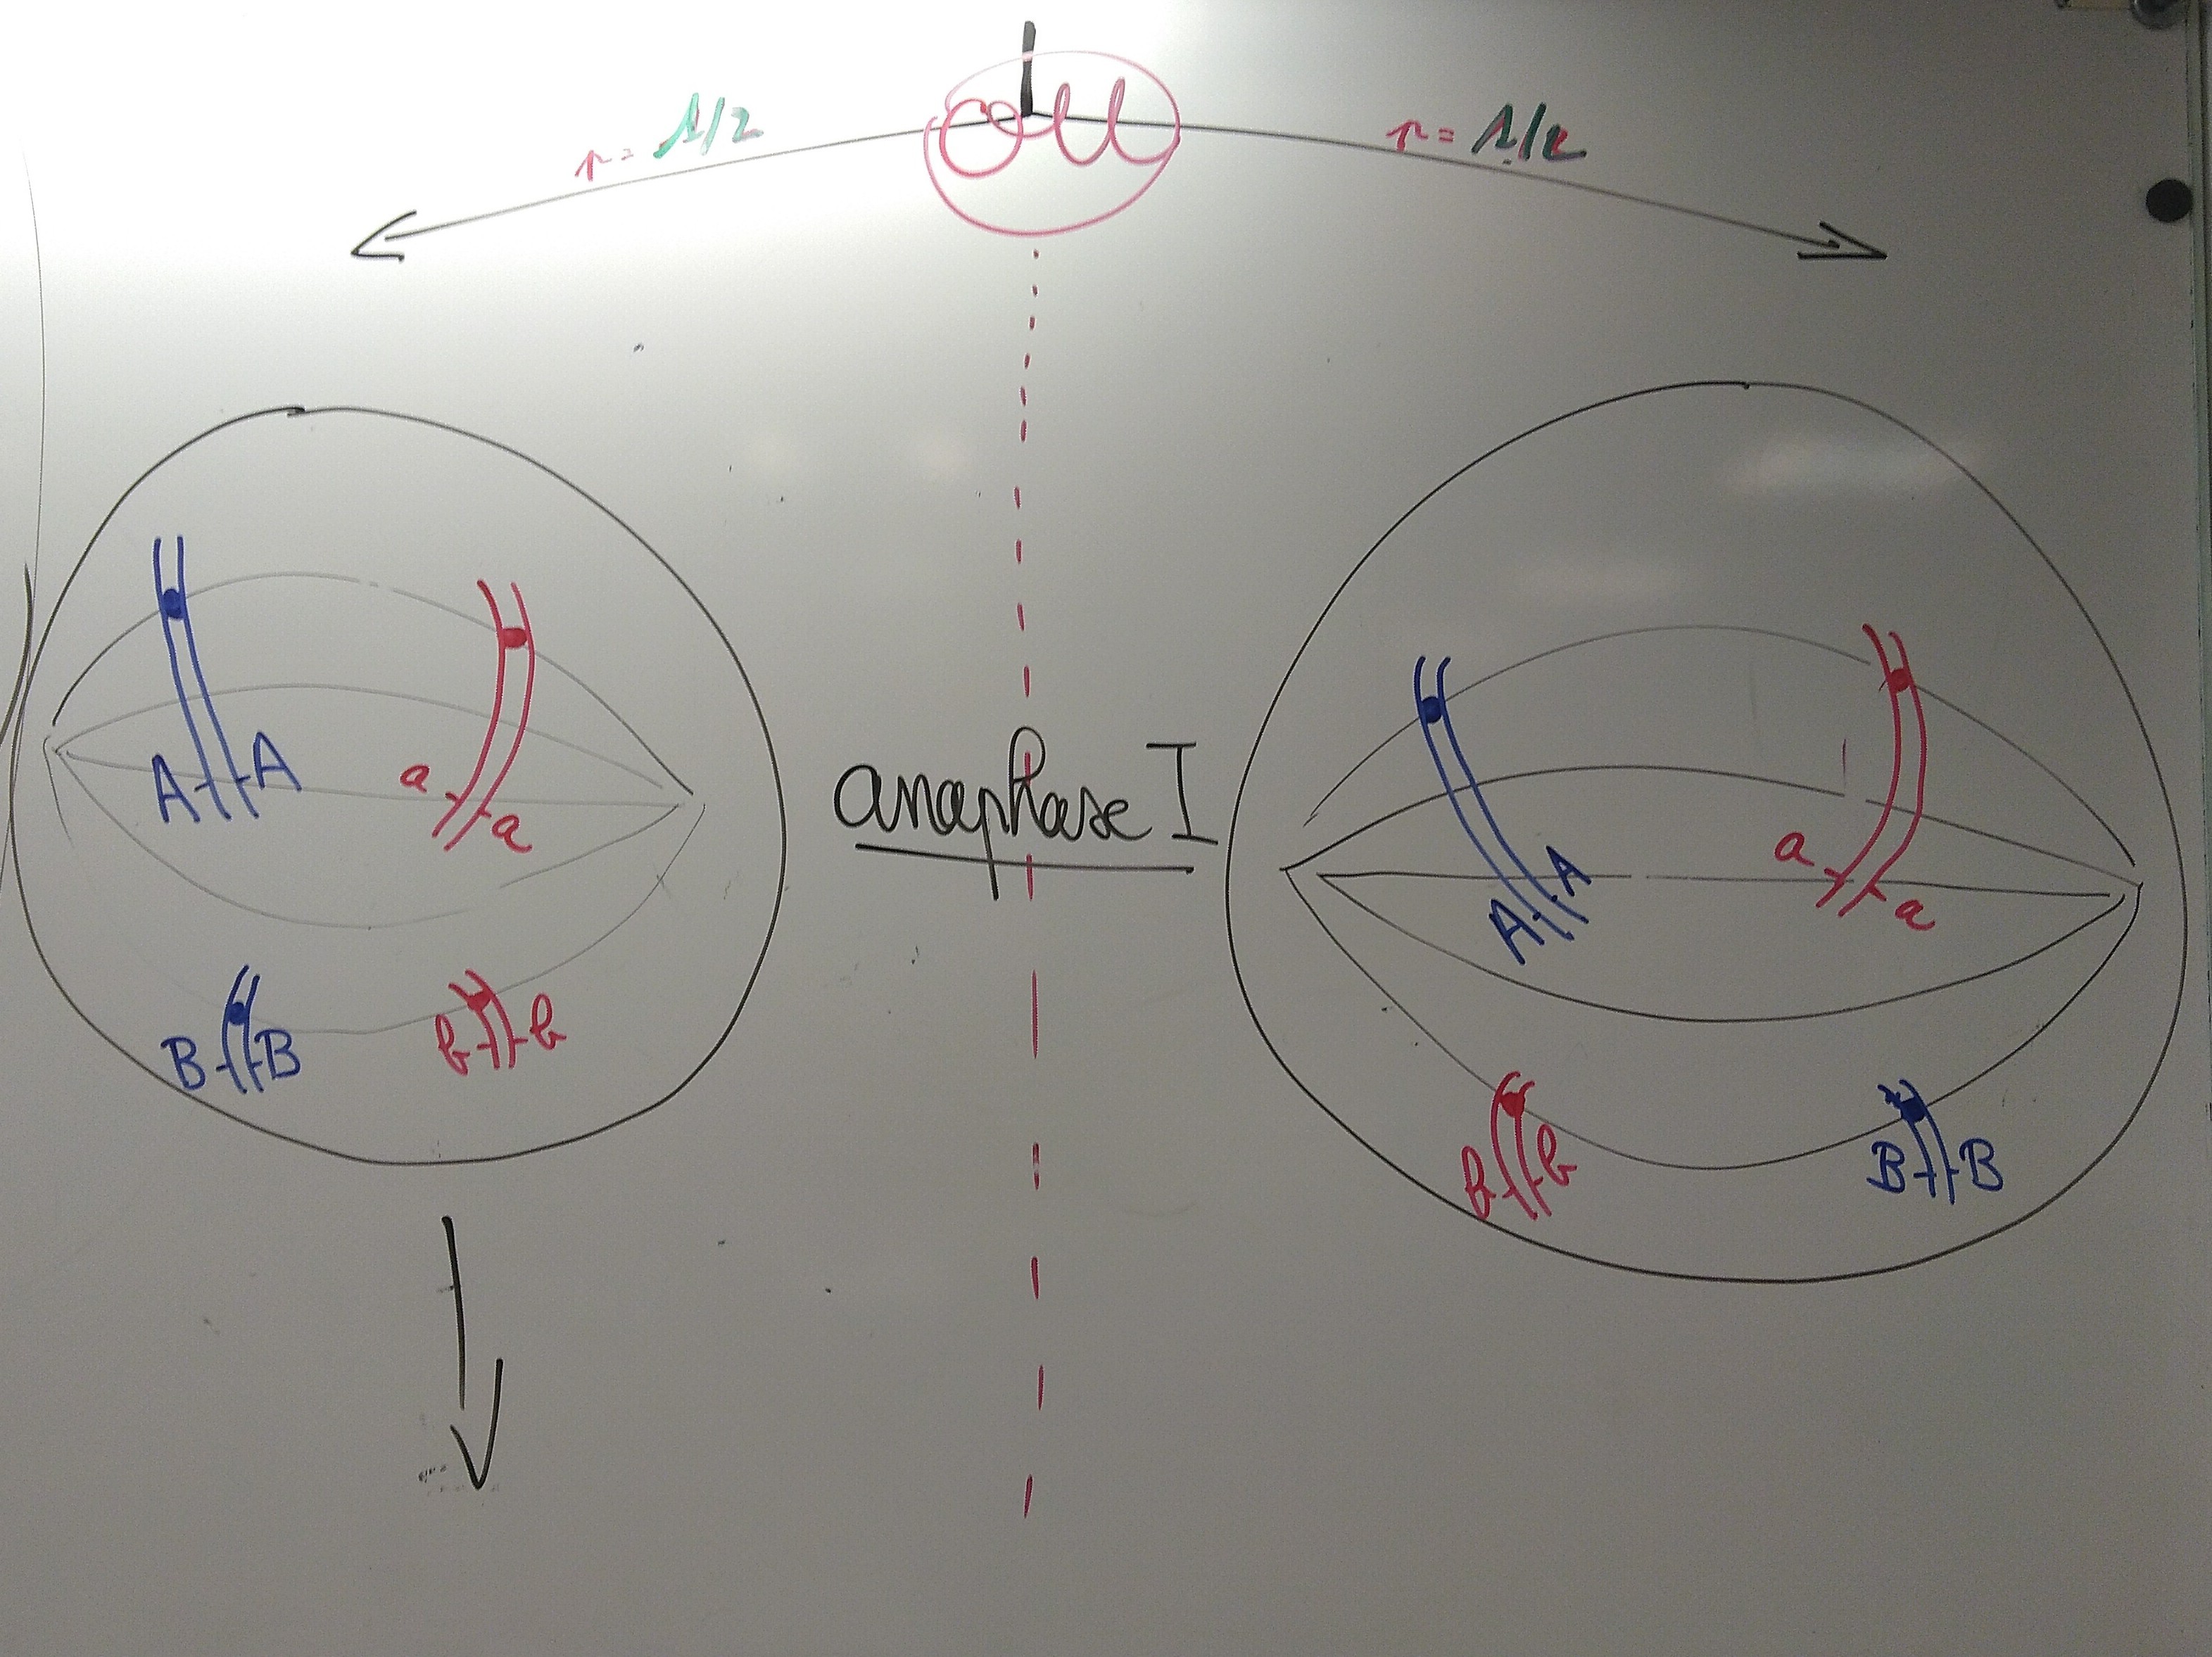 ou
p = 1/2
p = 1/2
A A
a a
anaphase I
A A
a a
B B
b b
b b
B B